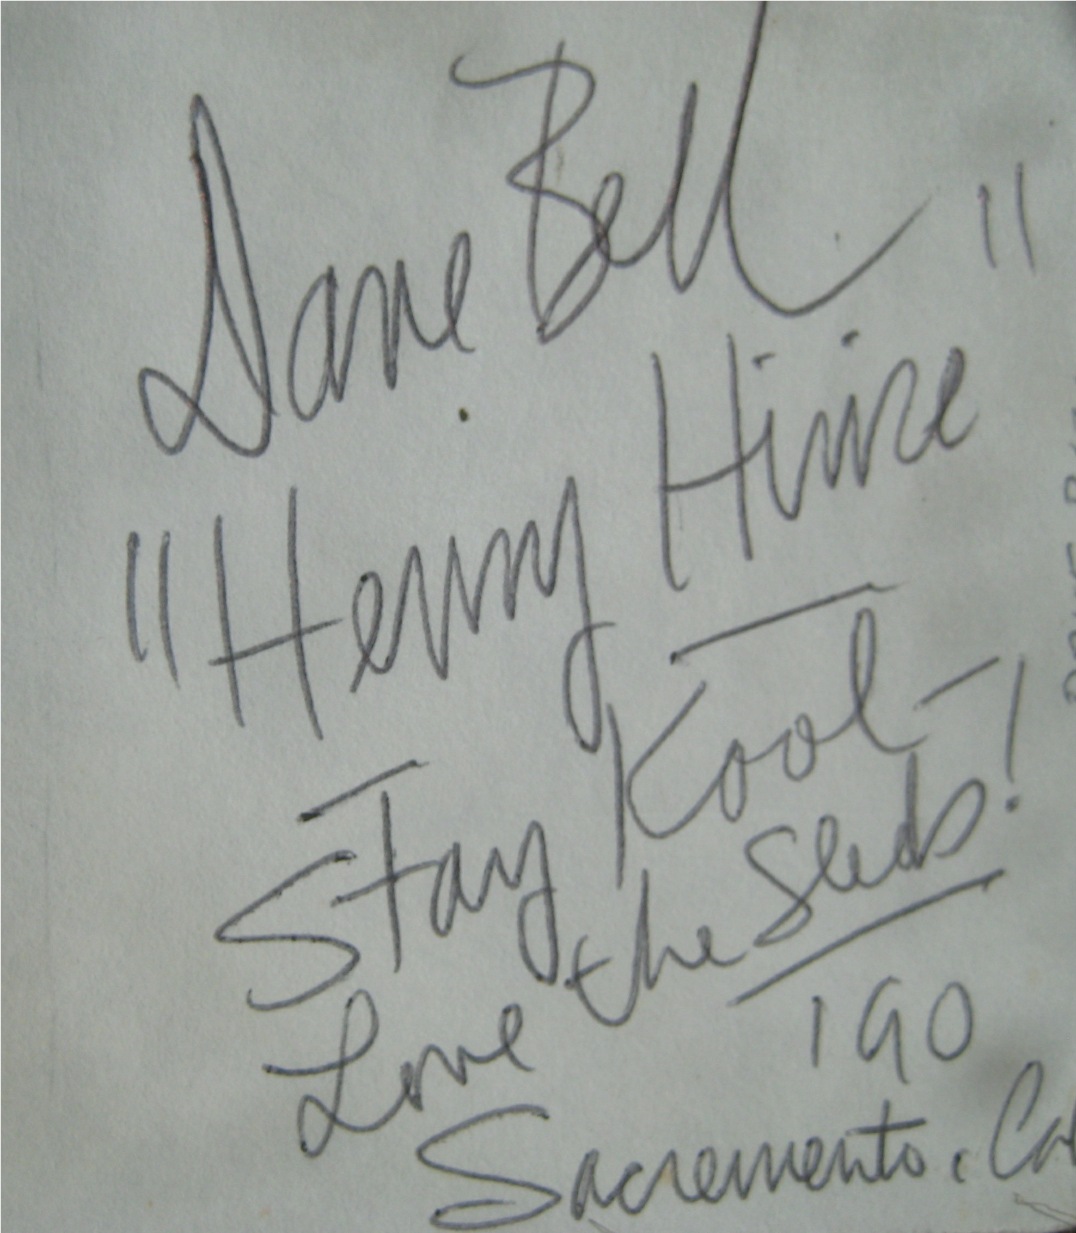 Dave Bell
"Henry Hinze"
Stay Kool-
Love the Seeds!
190
Sacramento, Ca